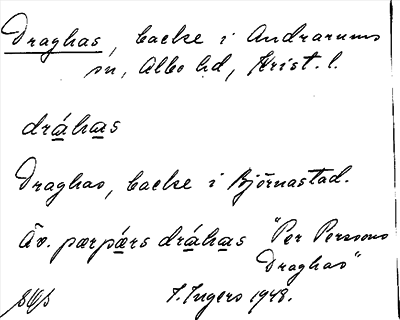 Draghas, backe i Andrarums
sn, Albo hd, Krist. l.
dráhas
Draghas, backe i Björnastad.
Äv. pærpárs dráhas "Per Persons
Draghas"
I. Ingers 1948.